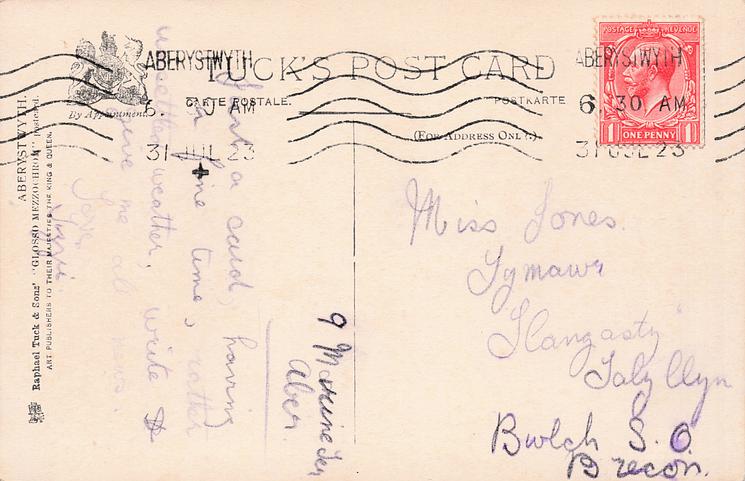 TUCK'S POST CARD
CARTE POSTALE.
POSTKARTE
(FOR ADDRESS ONLY.)
By Appointment
ABERYSTWYTH
6. 30 AM
31 JUL 23
ABERYSTWYTH
6. 30 AM
31 JUL 23
POSTAGE REVENUE
1 ONE PENNY 1
ABERYSTWYTH.
Raphael Tuck & Sons' "GLOSSO MEZZOCHROM" Registered.
ART PUBLISHERS TO THEIR MAJESTIES THE KING & QUEEN.
9 Marine Ter
Aber.
Just a card, having
a fine time, rather
unsettled weather, write &
give me all news.
Love
Miss Jones.
Tymawr
Llangasty
Talyllyn
Bwlch S.O.
Brecon.